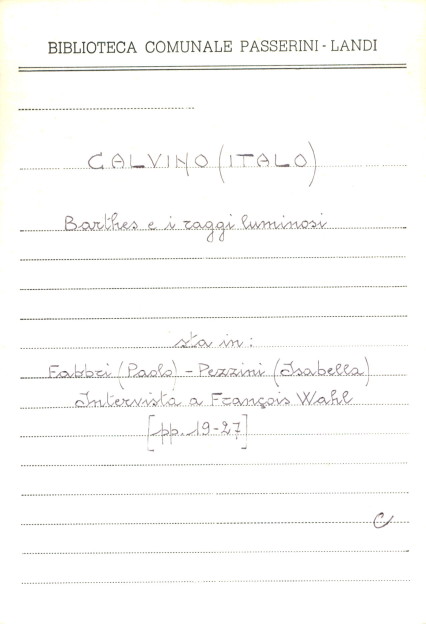 BIBLIOTECA COMUNALE PASSERINI - LANDI
CALVINO (ITALO)
Barthes e i raggi luminosi
sta in:
Fabbri (Paolo) - Pezzini (Isabella)
Intervista a François Wahl
[pp. 19-27]
C